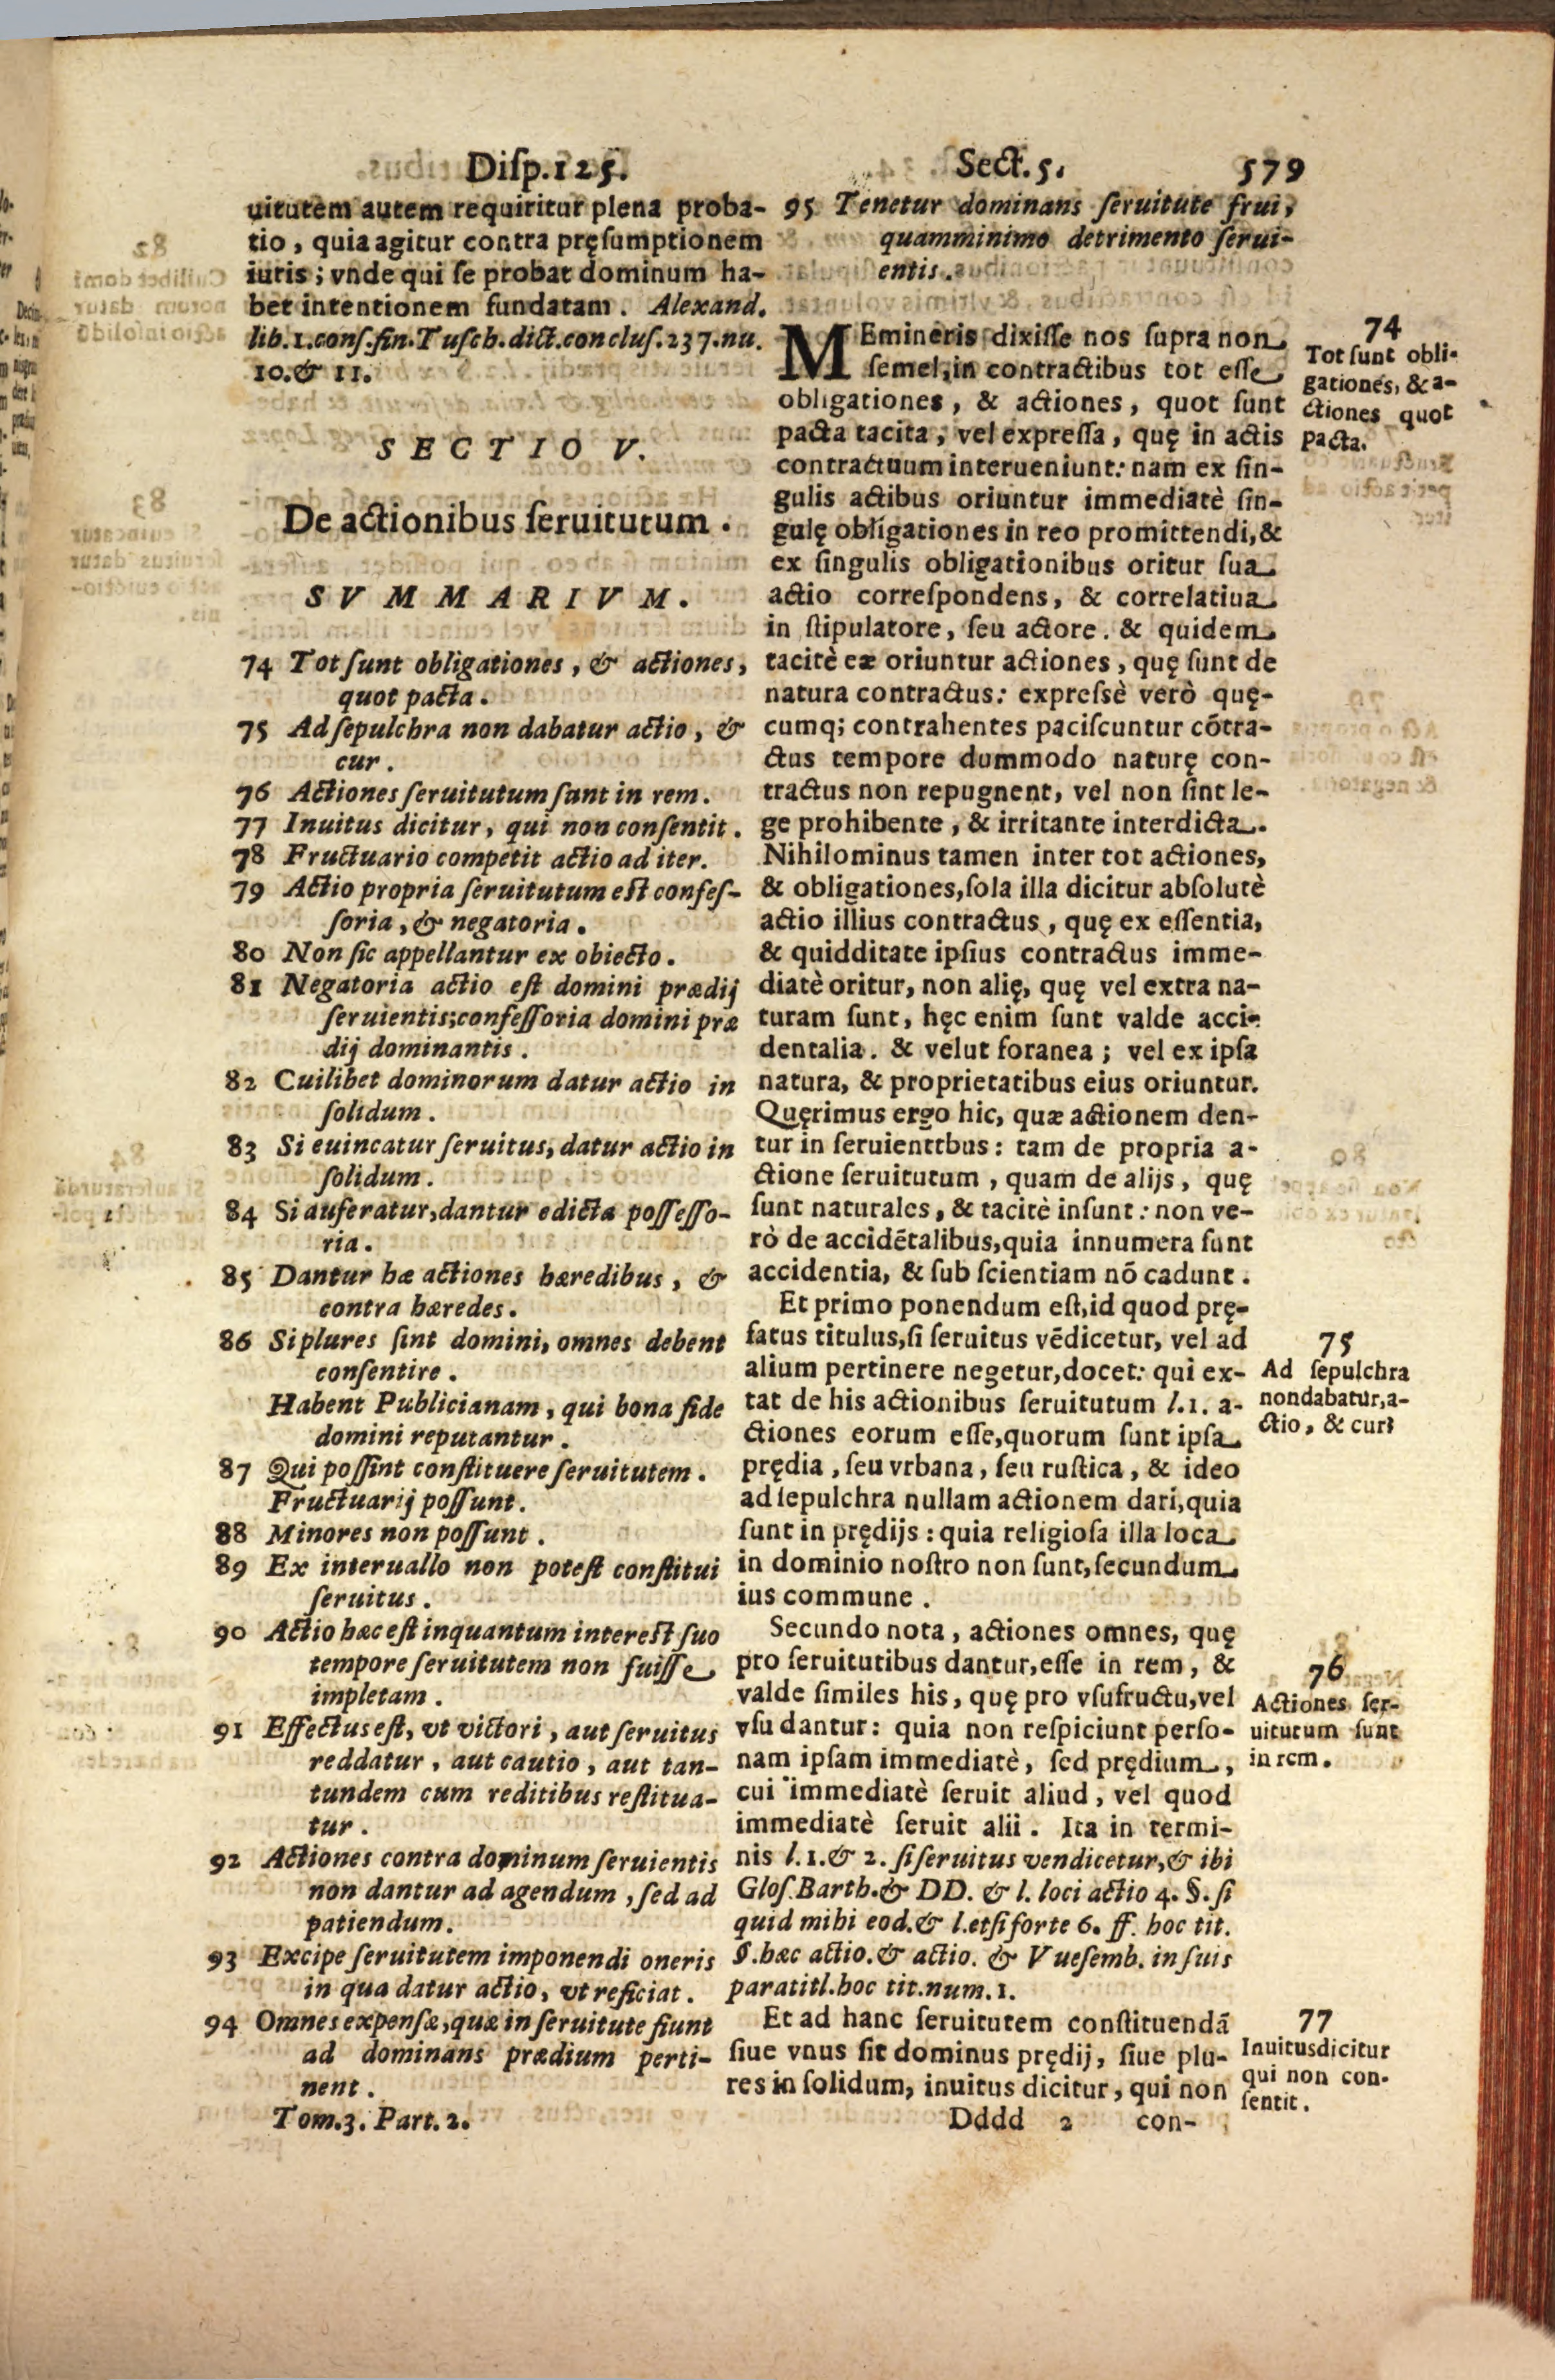 Diſp.125. Sect.5. 579
uitutem autem requiritur plena proba-
tio, quia agitur contra pręſumptionem
iuris; vnde qui ſe probat dominum ha-
bet intentionem fundatam. Alexand.
lib.1.conſ.fin.Tuſch.dict.concluſ.237.nu.
10.& 11.
SECTIO V.
De actionibus ſeruitutum.
SVMMARIVM.
74 Tot ſunt obligationes, & actiones,
quot pacta.
75 Ad ſepulchra non dabatur actio, &
cur.
76 Actiones ſeruitutum ſunt in rem.
77 Inuitus dicitur, qui non conſentit.
78 Fructuario competit actio ad iter.
79 Actio propria ſeruitutum eſt confeſ-
ſoria, & negatoria.
80 Non ſic appellantur ex obiecto.
81 Negatoria actio eſt domini prædij
ſeruientis;confeſſoria domini præ
dij dominantis.
82 Cuilibet dominorum datur actio in
ſolidum.
83 Si euincatur ſeruitus, datur actio in
ſolidum.
84 Si auferatur,dantur edicta poſſeſſo-
ria.
85 Dantur hæ actiones hæredibus, &
contra hæredes.
86 Si plures ſint domini, omnes debent
conſentire.
Habent Publicianam, qui bona fide
domini reputantur.
87 Qui poſſint conſtituere ſeruitutem.
Fructuarij poſſunt.
88 Minores non poſſunt.
89 Ex interuallo non poteſt conſtitui
ſeruitus.
90 Actio hæc eſt inquantum intereſt ſuo
tempore ſeruitutem non fuiſſe
impletam.
91 Effectus eſt, vt victori, aut ſeruitus
reddatur, aut cautio, aut tan-
tundem cum reditibus reſtitua-
tur.
92 Actiones contra dominum ſeruientis
non dantur ad agendum, ſed ad
patiendum.
93 Excipe ſeruitutem imponendi oneris
in qua datur actio, vt reficiat.
94 Omnes expenſæ,quæ in ſeruitute fiunt
ad dominans prædium perti-
nent.
Tom.3. Part.2.
95 Tenetur dominans ſeruitute frui,
quamminimo detrimento ſerui-
entis.
MEmineris dixiſſe nos ſupra non
ſemel,in contractibus tot eſſe
obligationes, & actiones, quot ſunt
pacta tacita, vel expreſſa, quę in actis
contractuum interueniunt: nam ex ſin-
gulis actibus oriuntur immediatè ſin-
gulę obligationes in reo promittendi,&
ex ſingulis obligationibus oritur ſua
actio correſpondens, & correlatiua
in ſtipulatore, ſeu actore. & quidem
tacitè eæ oriuntur actiones, quę ſunt de
natura contractus: expreſsè verò quę-
cumq; contrahentes paciſcuntur cōtra-
ctus tempore dummodo naturę con-
tractus non repugnent, vel non ſint le-
ge prohibente, & irritante interdicta.
Nihilominus tamen inter tot actiones,
& obligationes,ſola illa dicitur abſolutè
actio illius contractus, quę ex eſſentia,
& quidditate ipſius contractus imme-
diatè oritur, non alię, quę vel extra na-
turam ſunt, hęc enim ſunt valde acci-
dentalia. & velut foranea; vel ex ipſa
natura, & proprietatibus eius oriuntur.
Quęrimus ergo hic, quæ actionem den-
tur in ſeruienttbus: tam de propria a-
ctione ſeruitutum, quam de alijs, quę
ſunt naturales, & tacitè inſunt: non ve-
rò de accidētalibus,quia innumera ſunt
accidentia, & ſub ſcientiam nō cadunt.
Et primo ponendum eſt,id quod prę-
fatus titulus,ſi ſeruitus vēdicetur, vel ad
alium pertinere negetur,docet: qui ex-
tat de his actionibus ſeruitutum l.1. a-
ctiones eorum eſſe,quorum ſunt ipſa
prędia, ſeu vrbana, ſeu ruſtica, & ideo
ad ſepulchra nullam actionem dari,quia
ſunt in prędijs: quia religioſa illa loca
in dominio noſtro non ſunt,ſecundum
ius commune.
Secundo nota, actiones omnes, quę
pro ſeruitutibus dantur,eſſe in rem, &
valde ſimiles his, quę pro vſufructu,vel
vſu dantur: quia non reſpiciunt perſo-
nam ipſam immediatè, ſed prędium,
cui immediatè ſeruit aliud, vel quod
immediatè ſeruit alii. Ita in termi-
nis l.1.& 2. ſi ſeruitus vendicetur,& ibi
Gloſ.Barth.& DD. & l. loci actio 4. §. ſi
quid mihi eod.& l.etſi forte 6. ff. hoc tit.
§.hæc actio.& actio. & Vueſemb. in ſuis
paratitl.hoc tit.num.1.
Et ad hanc ſeruitutem conſtituendā
ſiue vnus ſit dominus prędij, ſiue plu-
res in ſolidum, inuitus dicitur, qui non
Dddd 2 con-
74
Tot ſunt obli-
gationes, & a-
ctiones quot
pacta.
75
Ad ſepulchra
nondabatur,a-
ctio, & cur?
76
Actiones ſer-
uitutum ſunt
in rem.
77
Inuitusdicitur
qui non con-
ſentit.